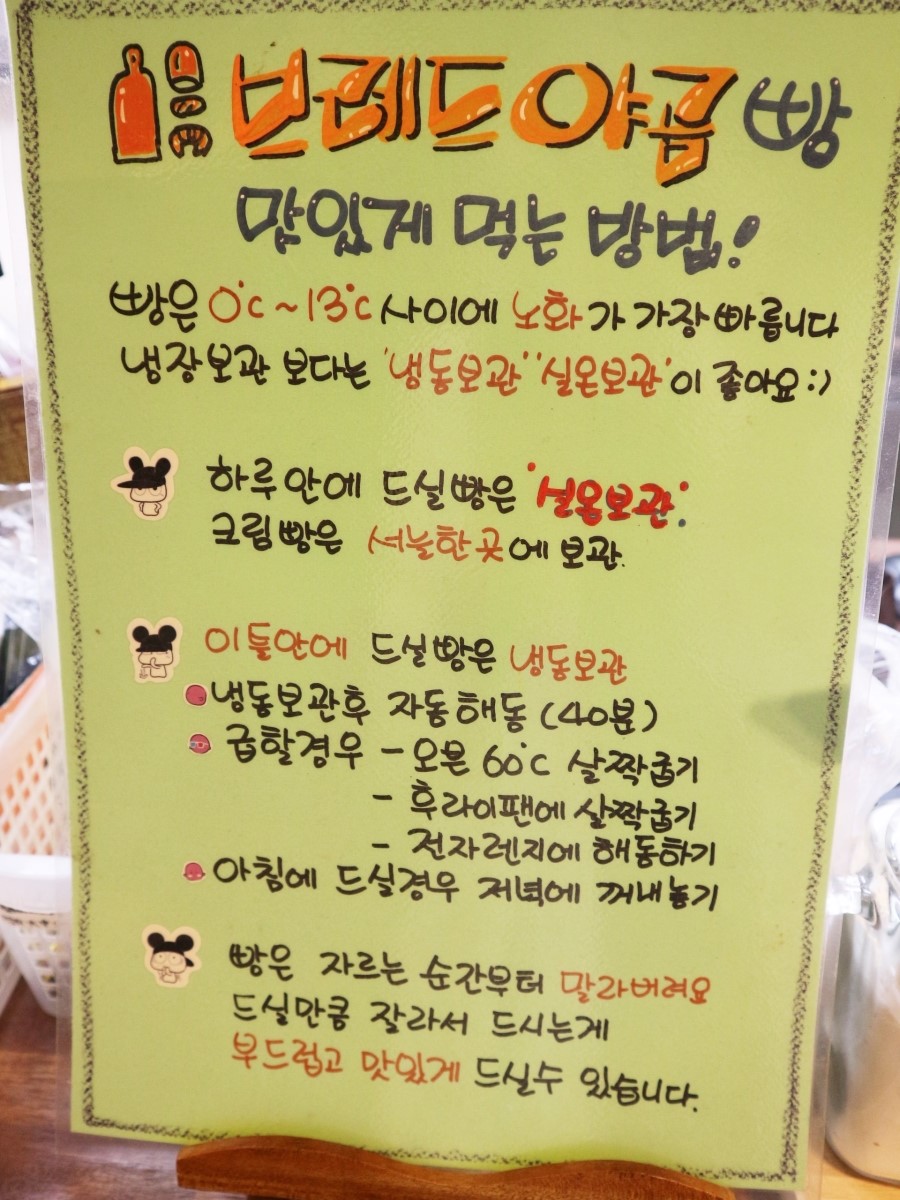 브레드야콥 빵
맛있게 먹는 방법!
빵은 0°C ~ 13°C 사이에 노화가 가장 빠릅니다
냉장보관 보다는 '냉동보관' '실온보관'이 좋아요 :)
하루 안에 드실빵은 '실온보관'
크림빵은 서늘한 곳에 보관.
이틀안에 드실빵은 냉동보관
냉동보관후 자동해동 (40분)
급할경우 - 오븐 60°C 살짝굽기
- 후라이팬에 살짝굽기
- 전자렌지에 해동하기
아침에 드실경우 저녁에 꺼내놓기
빵은 자르는 순간부터 말라버려요
드실만큼 잘라서 드시는게
부드럽고 맛있게 드실수 있습니다.